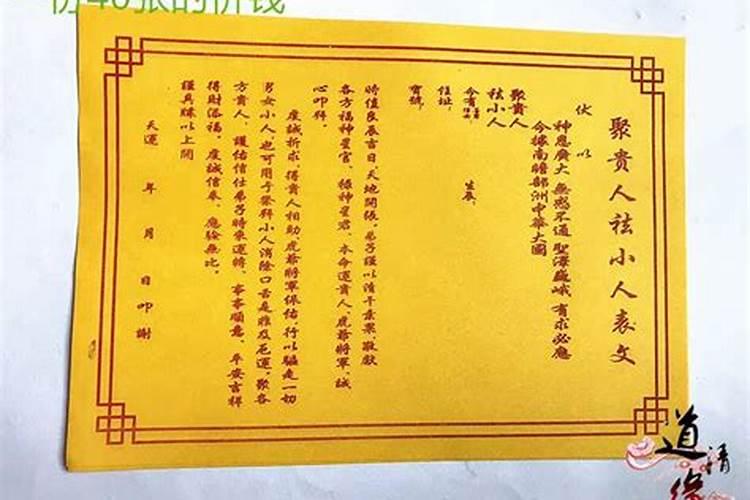 份40张的价钱
聚貴人祛小人表文
伏以
神恩廣大 無感不通 聖澤巍峨 有求必應
今據南瞻部洲中華大國
聚貴人
祛小人
今有
住址
生辰
寶號
時值良辰吉日,天地開張,弟子謹以清平素菓敬獻
各方福神星官、祿神星君、本命運貴人,虎爺將軍,誠
心叩拜。
虔誠祈求,得貴人相助虎爺將軍保佑行以驅走一切
男女小人也可用于祭拜小人消除口舌是非及厄運,聚各
方貴人,護佑信仕弟子時來運轉、事事順意、平安吉祥
得財添福。虔誠信奉,應驗無比。
謹具牒以上聞
天運 年 月 日叩謝
道清緣